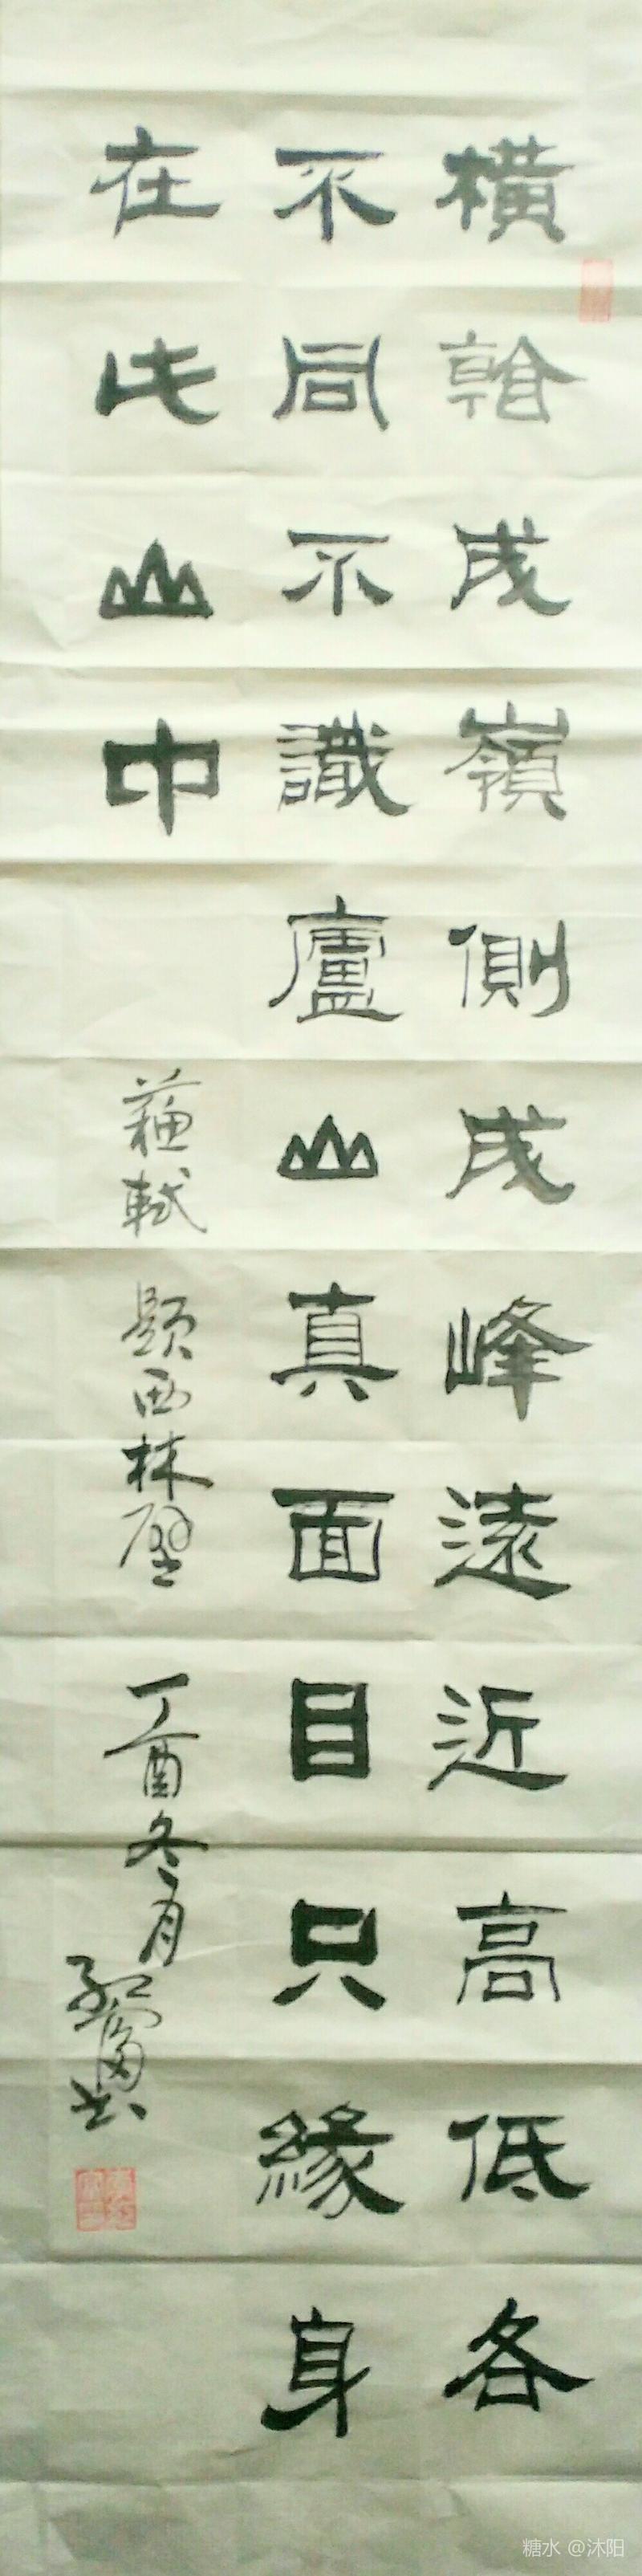 横看成嶺側成峰遠近高低各
不同不識廬山真面目只緣身
在此山中
蘇軾 題西林壁 丁酉冬月
书
糖水 @沐阳